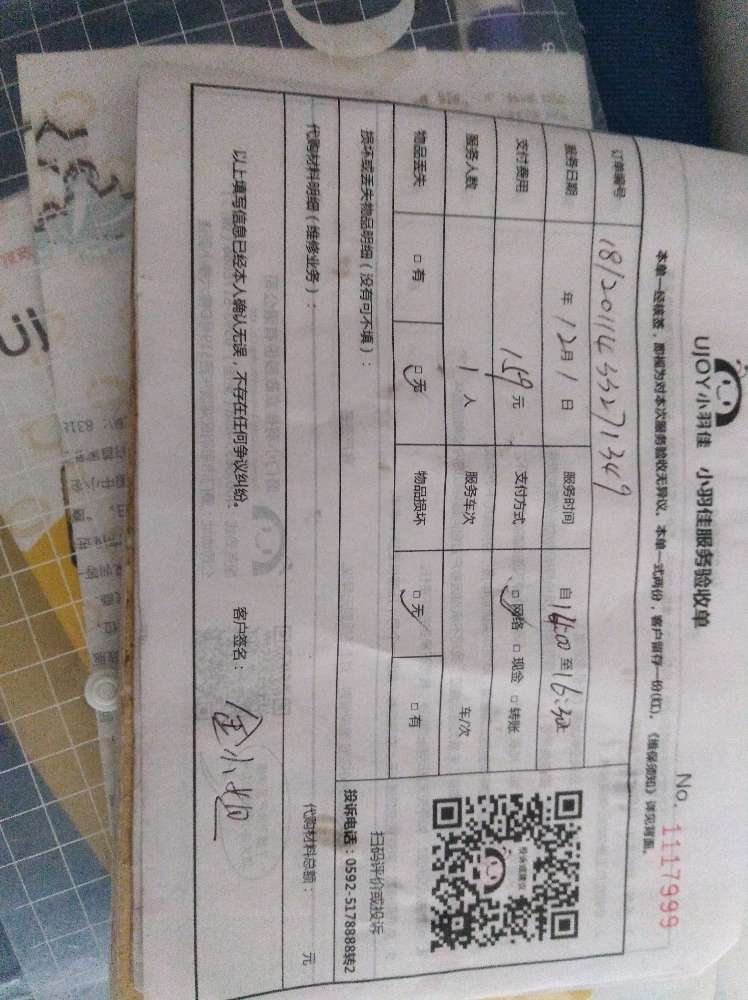 UJOY小羽佳 小羽佳服务验收单
No. 1117999
本单一经核签，即视为对本次服务验收无异议。本单一式两份，客户留存一份(红)。《维保须知》详见背面。
订单编号 18120114533271349
服务日期 年 12月 1 日 服务时间 自14:00 至16:30
支付费用 159 元 支付方式 □ 网络 □ 现金 □ 转账
服务人数 1 人 服务车次 车/次
物品丢失 □ 有 □ 无 物品损坏 □ 无 □ 有
损坏或丢失物品明细（没有可不填）：
代购材料明细（维修业务）： 代购材料总额： 元
以上填写信息已经本人确认无误，不存在任何争议纠纷。 客户签名：
扫码评价或投诉
投诉电话：0592-5178888转2